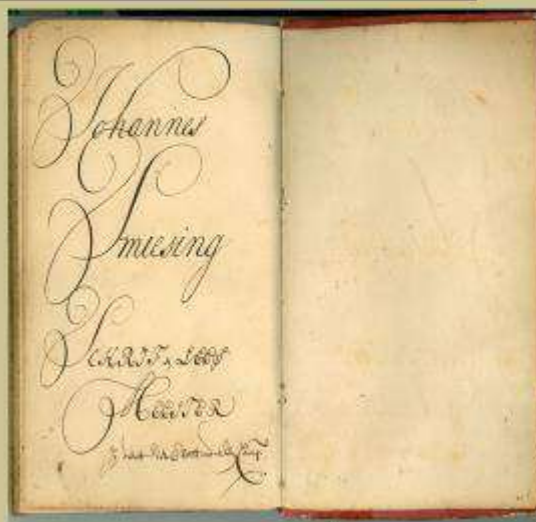 Johannes
Smiesing
SCKRIFT & LEES
MEESTER